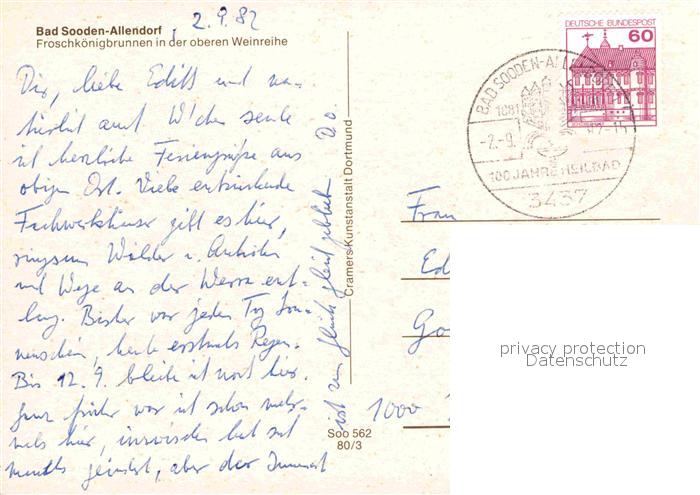 Bad Sooden-Allendorf, 2.9.82
Froschkönigbrunnen in der oberen Weinreihe
Dir, liebe Edith und na-
türlich auch sende
ich herzliche Feriengrüße aus
obigem Ort. Viele entzückende
Fachwerkhäuser gibt es hier,
ringsum Wälder u. Anhöhen
und Wege an der Werra ent-
lang. Bisher war jeden Tag Son-
nenschein, heute erstmals Regen.
Bis 12.9. bleibe ich noch hier.
Ganz früher war ich schon mehr-
mals hier, inzwischen hat sich
manches geändert, aber der Innenort
ist zum Glück gleich geblieben D.O.
Cramers Kunstanstalt Dortmund
Soo 562
80/3
DEUTSCHE BUNDESPOST
60
BAD SOODEN-ALLENDORF
1881
-2.-9.
82-14
100 JAHRE HEILBAD
3437
Frau
Ed
Go
1000
privacy protection
Datenschutz